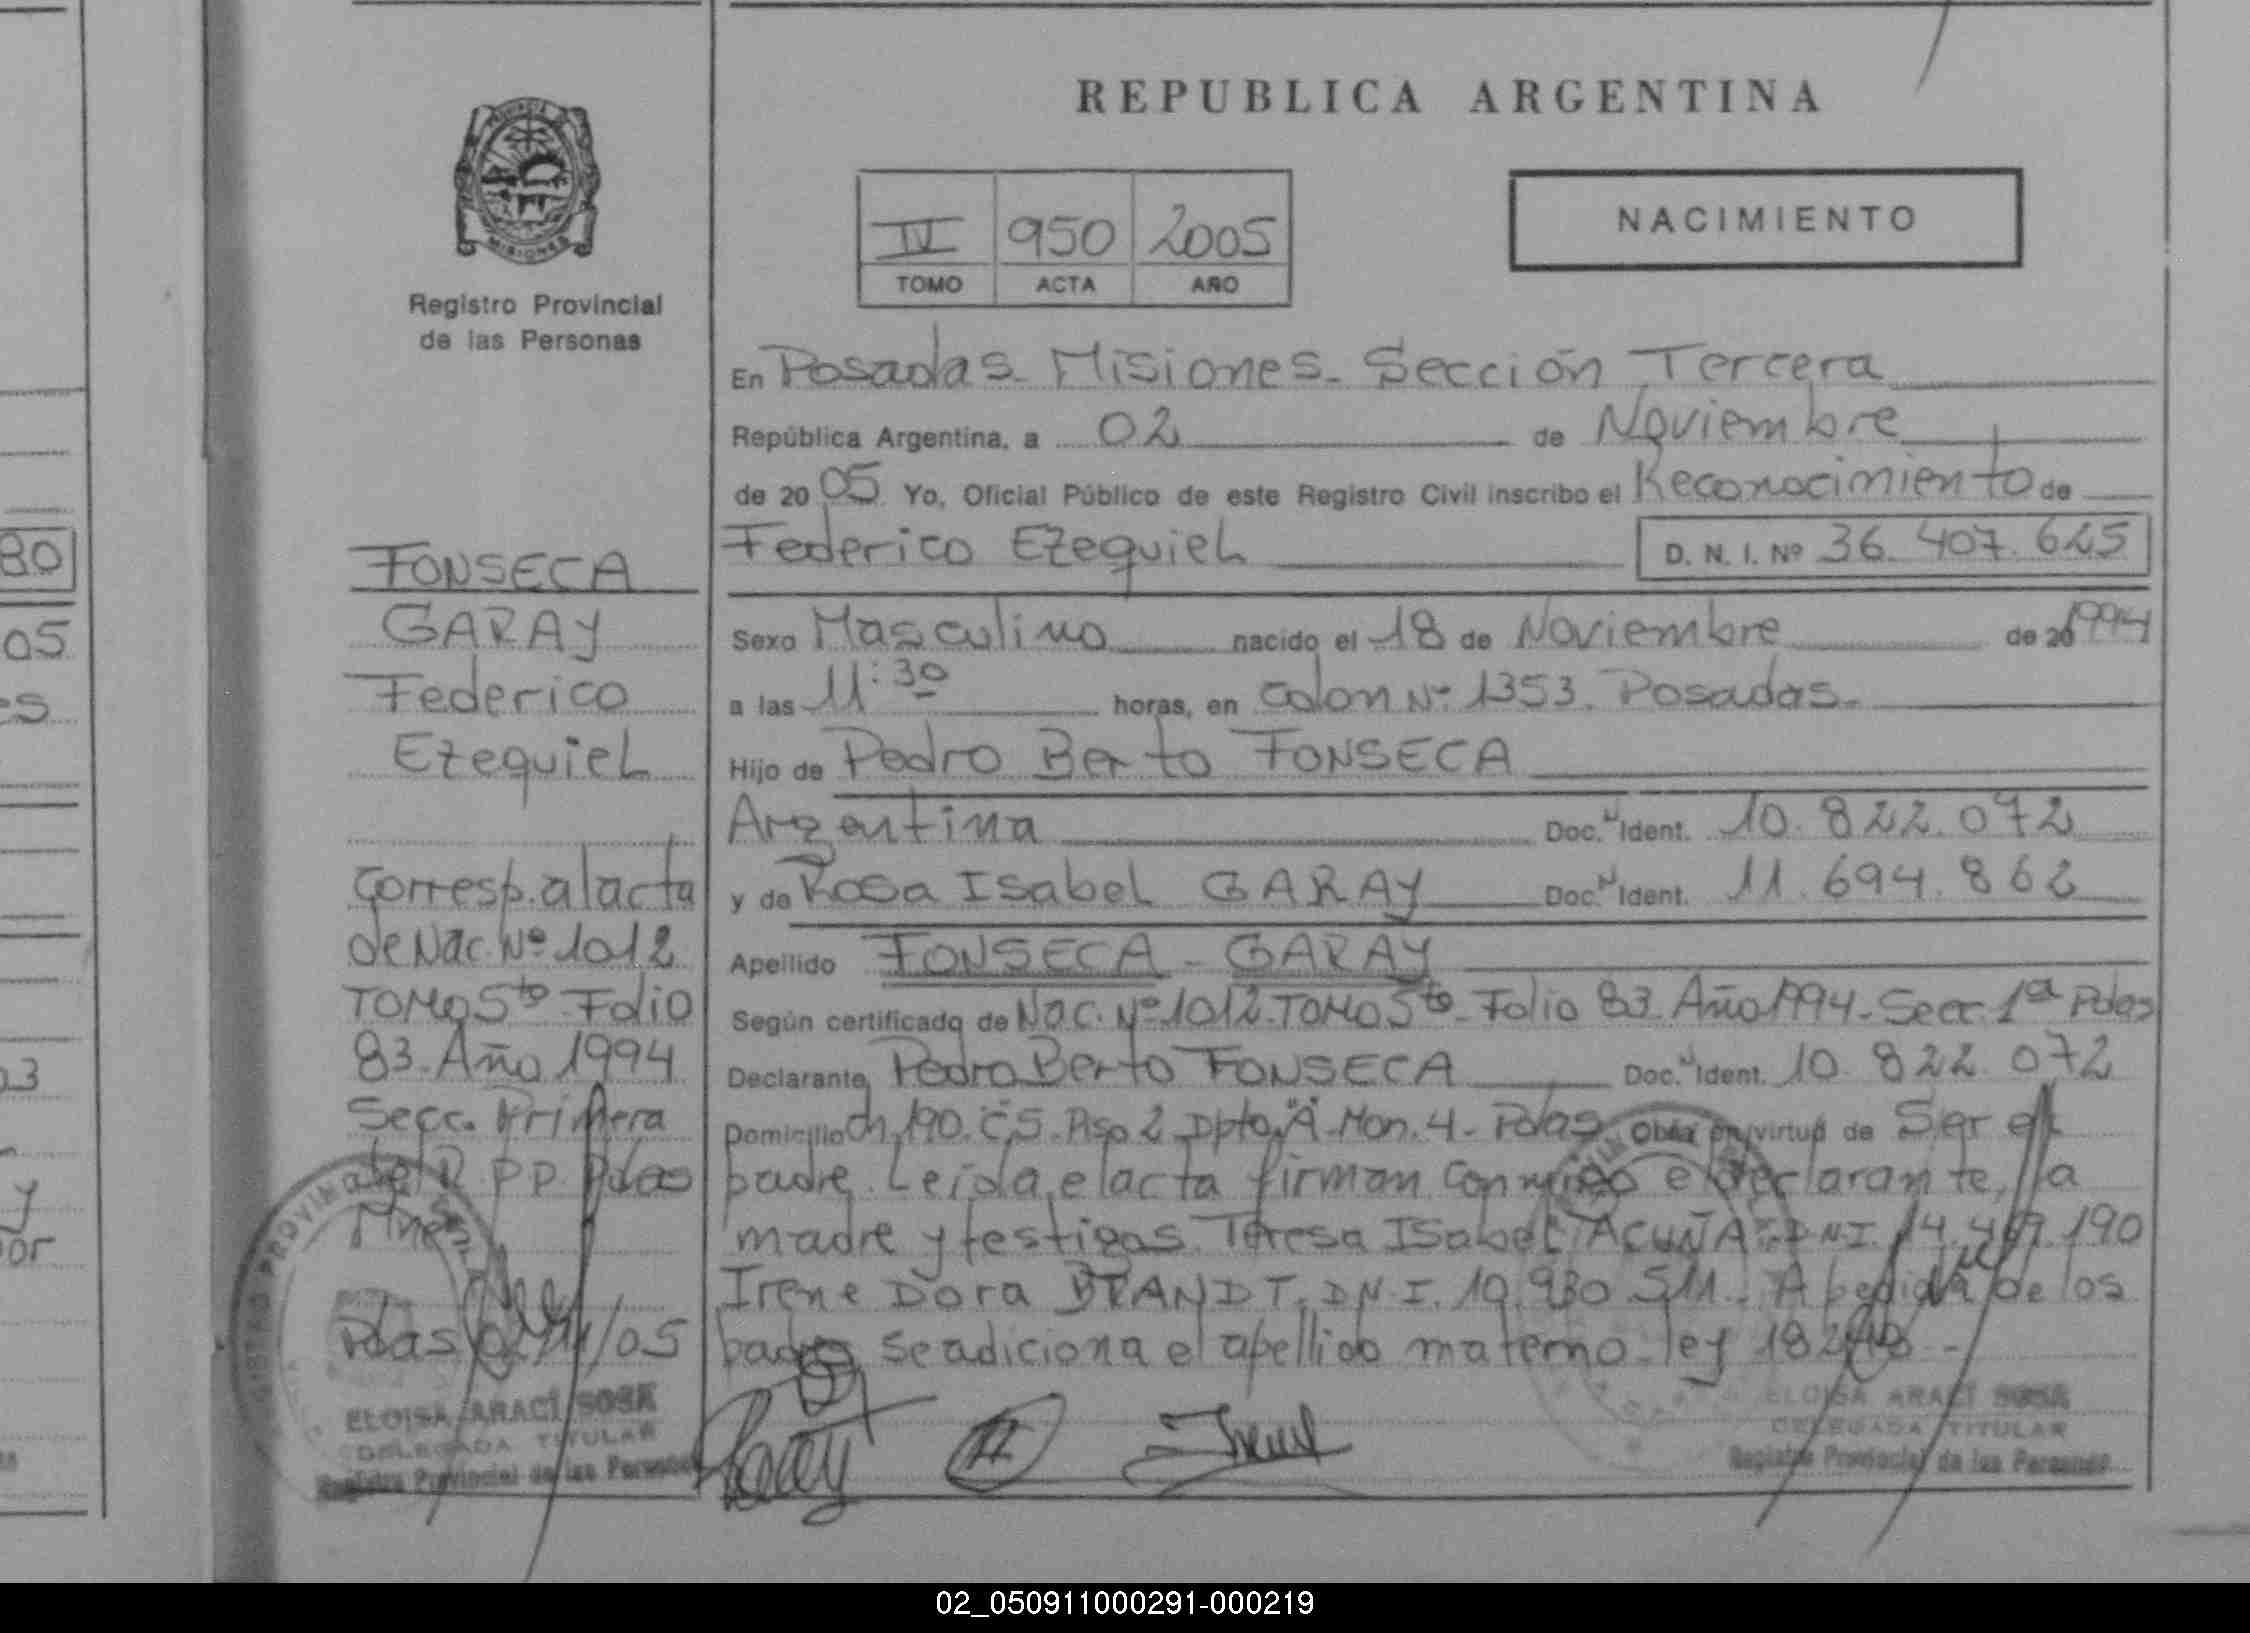 REPUBLICA ARGENTINA
NACIMIENTO
IV 950 2005
TOMO ACTA AÑO
MISIONES
Registro Provincial
de las Personas
En Posadas - Misiones - Sección Tercera
República Argentina, a 02 de Noviembre
de 20 05 Yo, Oficial Público de este Registro Civil inscribo el Reconocimiento de
Federico Ezequiel D. N. I. Nº 36.407.625
Sexo Masculino nacido el 18 de Noviembre de 20 1994
a las 11:30 horas, en Colon Nº 1353. Posadas.-
Hijo de Pedro Berto FONSECA
Argentina Doc. Ident. 10.822.072
y de Rosa Isabel GARAY Doc. Ident. 11.694.862
Apellido FONSECA - GARAY
Según certificado de Nac. Nº 1012. TOMO 5to - Folio 83. Año 1994 - Secc. 1ª Pdas
Declarante Pedro Berto FONSECA Doc. Ident. 10.822.072
Domicilio ch. 190. C.5. Piso 2 Dpto "A" - Mon. 4 - Pdas Obra en virtud de Ser el
padre. Leida el acta firman conmigo el declarante, la
madre y testigos Teresa Isabel ACUÑA - DNI. 190
Irene Dora BRANDT. D.N.I. 10.930.511. - A pedido de los
padres se adiciona el apellido materno - ley 18248 -
ELOISA ARACI SOSA
DELEGADA TITULAR
Registro Provincial de las Personas
FONSECA
GARAY
Federico
Ezequiel
Corresp. al acta
de Nac. Nº 1012
TOMO 5to - Folio
83. Año 1994
Secc. Primera
del R.P.P. Pdas
Mnes
Pdas 02/11/05
ELOISA ARACI SOSA
DELEGADA TITULAR
Registro Provincial de las Personas
80
05
es
03
y
or
02_050911000291-000219